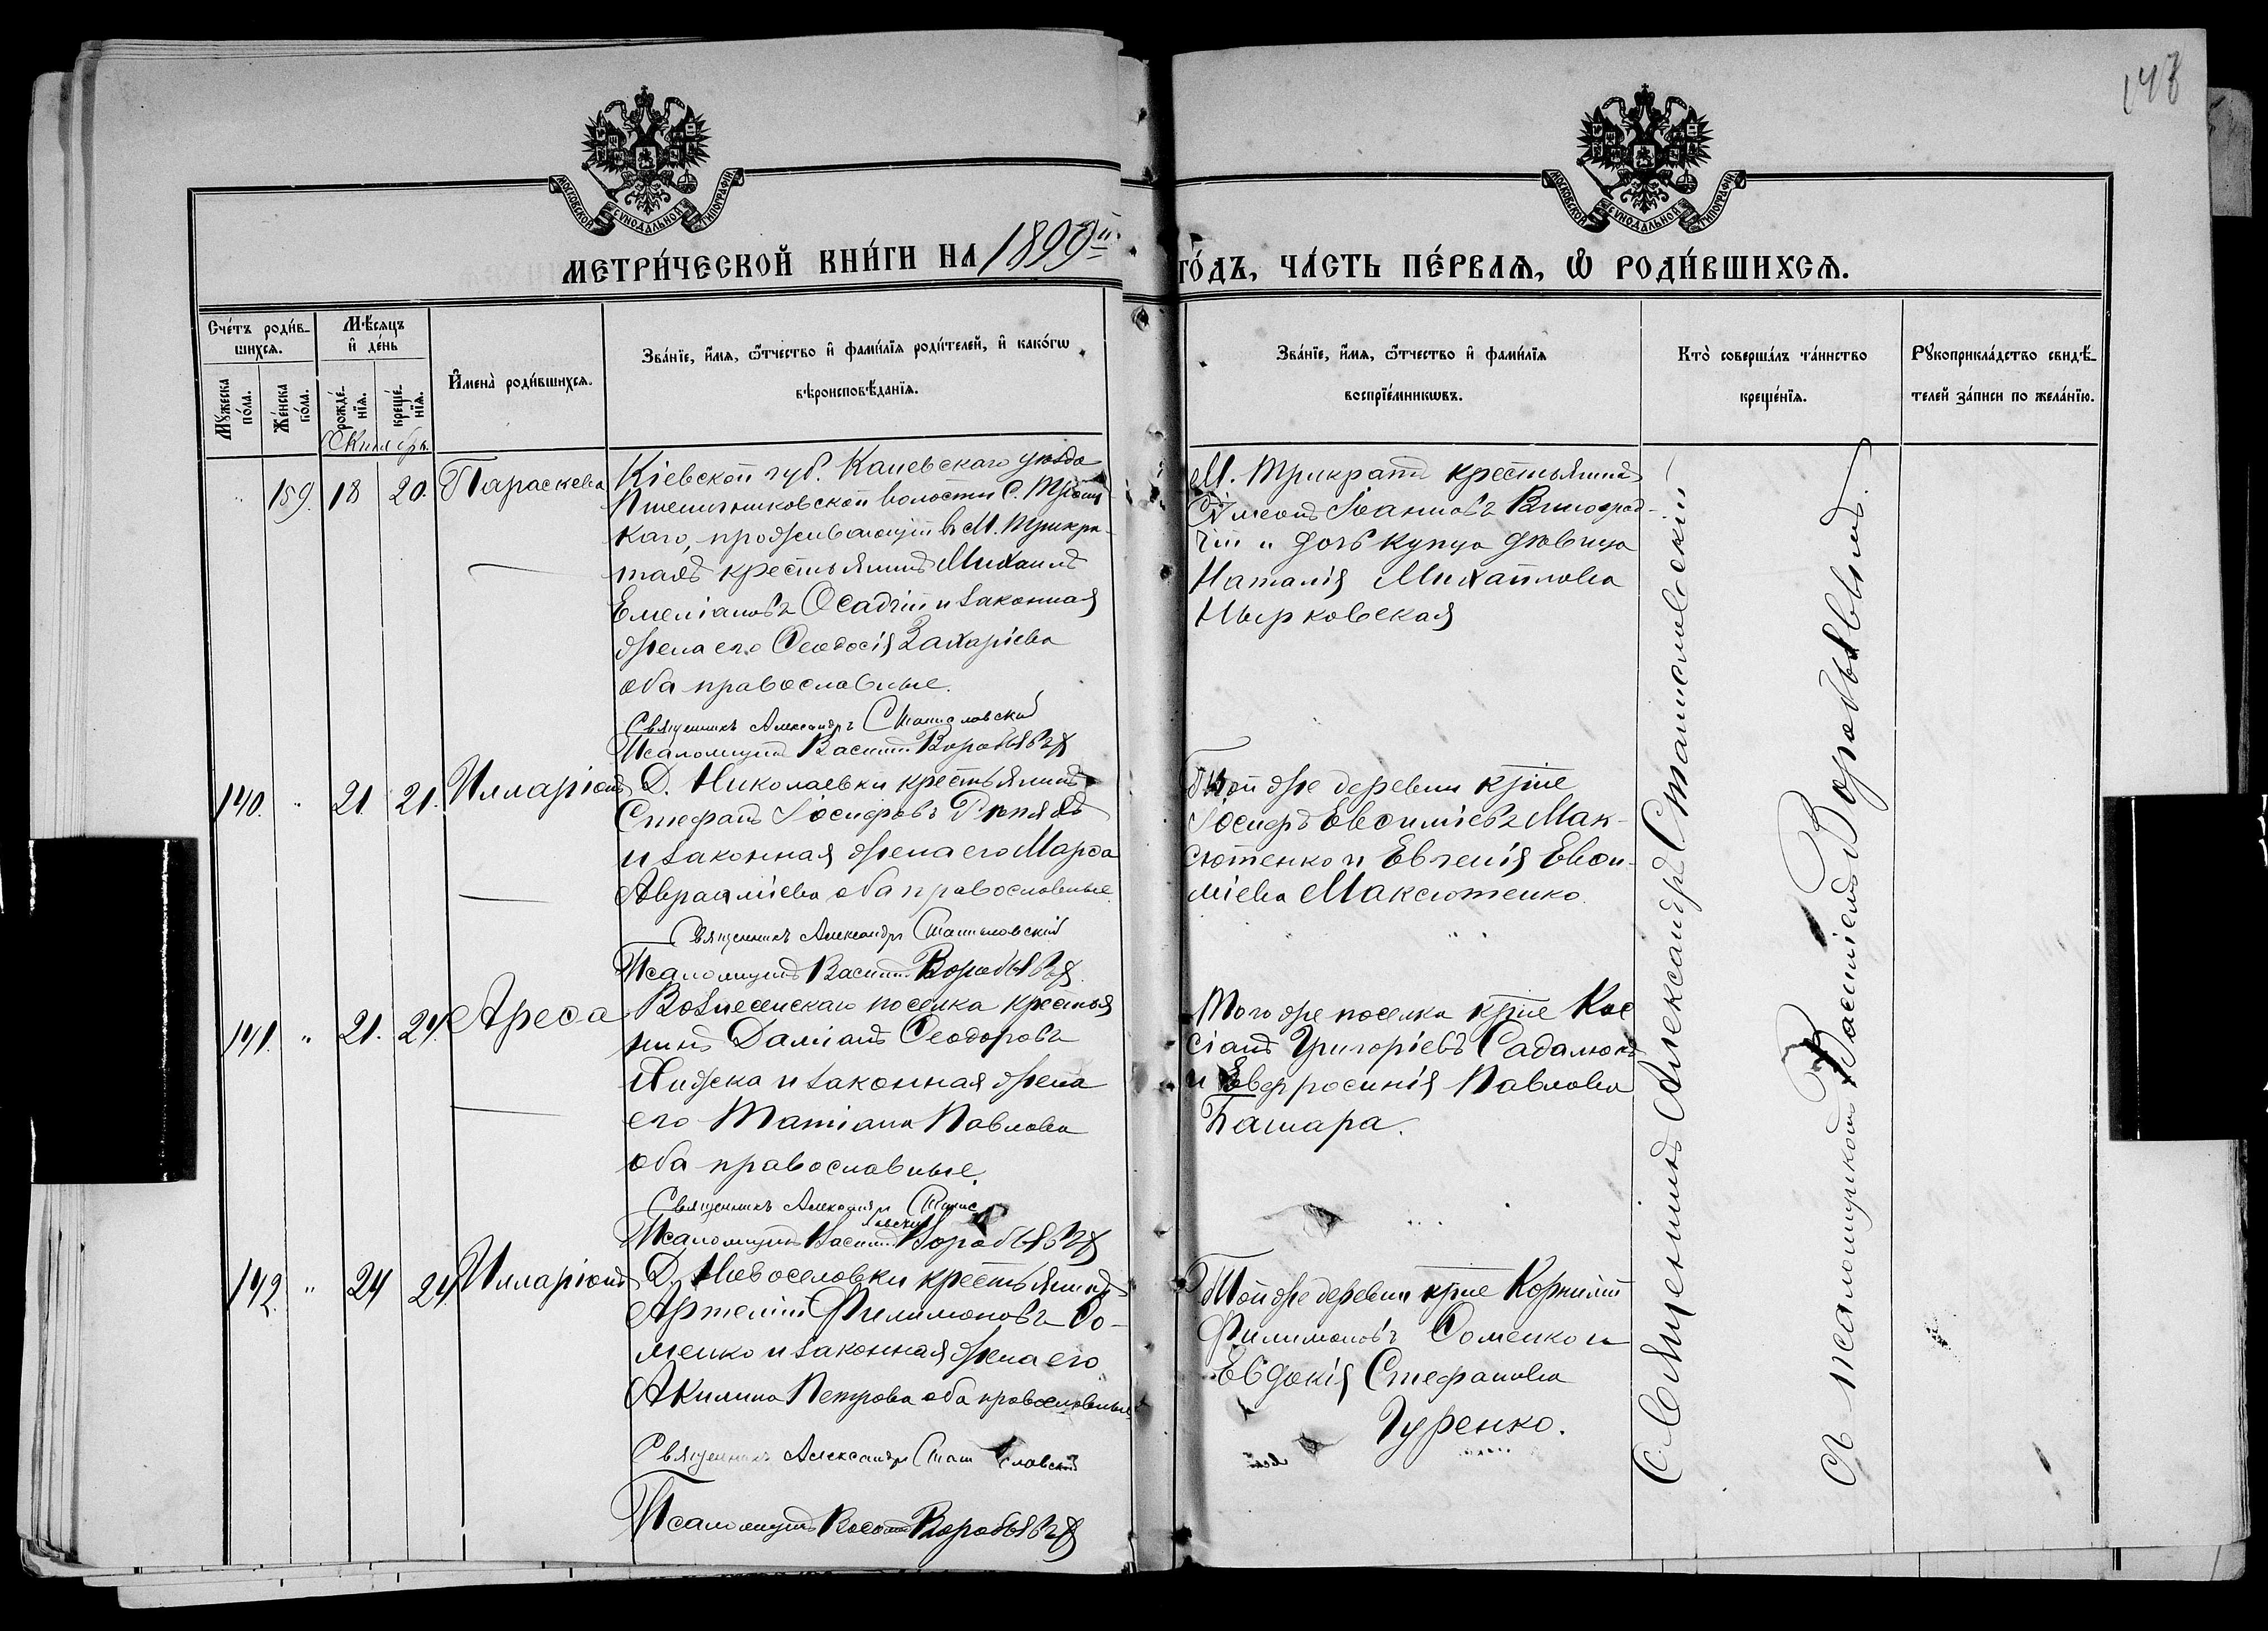 148
МОСКОВСКОЙ СѴНОДАЛЬНОЙ ТИПОГРАФІИ
МОСКОВСКОЙ СѴНОДАЛЬНОЙ ТИПОГРАФІИ
МЕТРИ́ЧЕСКОЙ КНИ́ГИ НА 1899й ГО́ДЪ, ЧА́СТЬ ПЕ́РВАѦ, Ѿ РОДИ́ВШИХСѦ.
Сче́тъ роди́в-
шихсѧ.
Мꙋ́жеска по́ла.
Же́нска по́ла.
Мѣ́сѧцъ
и҆ де́нь
рожде́-
нїѧ.
креще́-
нїѧ.
Октябрь.
И҆мена̀ роди́вшихсѧ.
Зва́нїе, и҆́мѧ, ѻ҆́тчество и҆ фами́лїѧ роди́телей, и҆ како́гѡ
вѣроисповѣ́данїѧ.
Зва́нїе, и҆́мѧ, ѻ҆́тчество и҆ фами́лїѧ
воспрїе́мникѡвъ.
Кто̀ соверша́лъ та́инство
креще́нїѧ.
Рꙋкоприкла́дство свидѣ́-
телей за́писи по жела́нїю.
" 159. 18 20. Параскева
Кіевской губ. Каневскаго уезда
Пшеничниковской волости С.
каго, проживающій в М. Трикра-
тахъ крестьянинъ Михаилъ
Емеліановъ Осадчій и законная
жена его Ѳеодосія Захаріева
оба православные.
Священникъ Александръ Станиславский
Псаломщикъ Василій Воробьевъ
М. Трикратъ крестьянинъ
Сѵмеонъ Іоанновъ Виноград-
чій и дочь купца девица
Наталія Михайлова
Цырковская
140. " 21. 21. Илларіонъ
Д. Николаевки крестьянинъ
Стефанъ Іосифовъ
и законная жена его Марѳа
Авраамиева оба православные.
Священникъ Александръ Станиславский
Псаломщикъ Василій Воробьевъ
Той же деревни крне
Іосифъ Евѳиміевъ Мак-
сютенко и Евгенія Евѳи-
міева Максютенко.
141. " 21. 24. Ареѳа
Вознесенскаго поселка крестья
нинъ Даміанъ Ѳеодоровъ
и законная жена
его Татіана Павлова
оба православные.
Священникъ Александръ Станис
лавскій
Псаломщикъ Василій Воробьевъ
Того же поселка крне Кас
сіанъ Григоріевъ Садалюкъ
и Евфросинія Павлова
Башара.
142. " 24 24. Илларіонъ
Д. Новоселовки крестьянинъ
Артемій Филимоновъ Ѳо-
менко и законная жена его
Акилина Петрова оба православные
Священникъ Александръ Станиславскій
Псаломщикъ Василій Воробьевъ
Той же деревни крне Корнилій
Филимоновъ Ѳоменко и
Евдокія Стефанова
Гуренко.
Священникъ Александръ Станиславскій
съ псаломщикомъ Василіемъ Воробьевымъ.